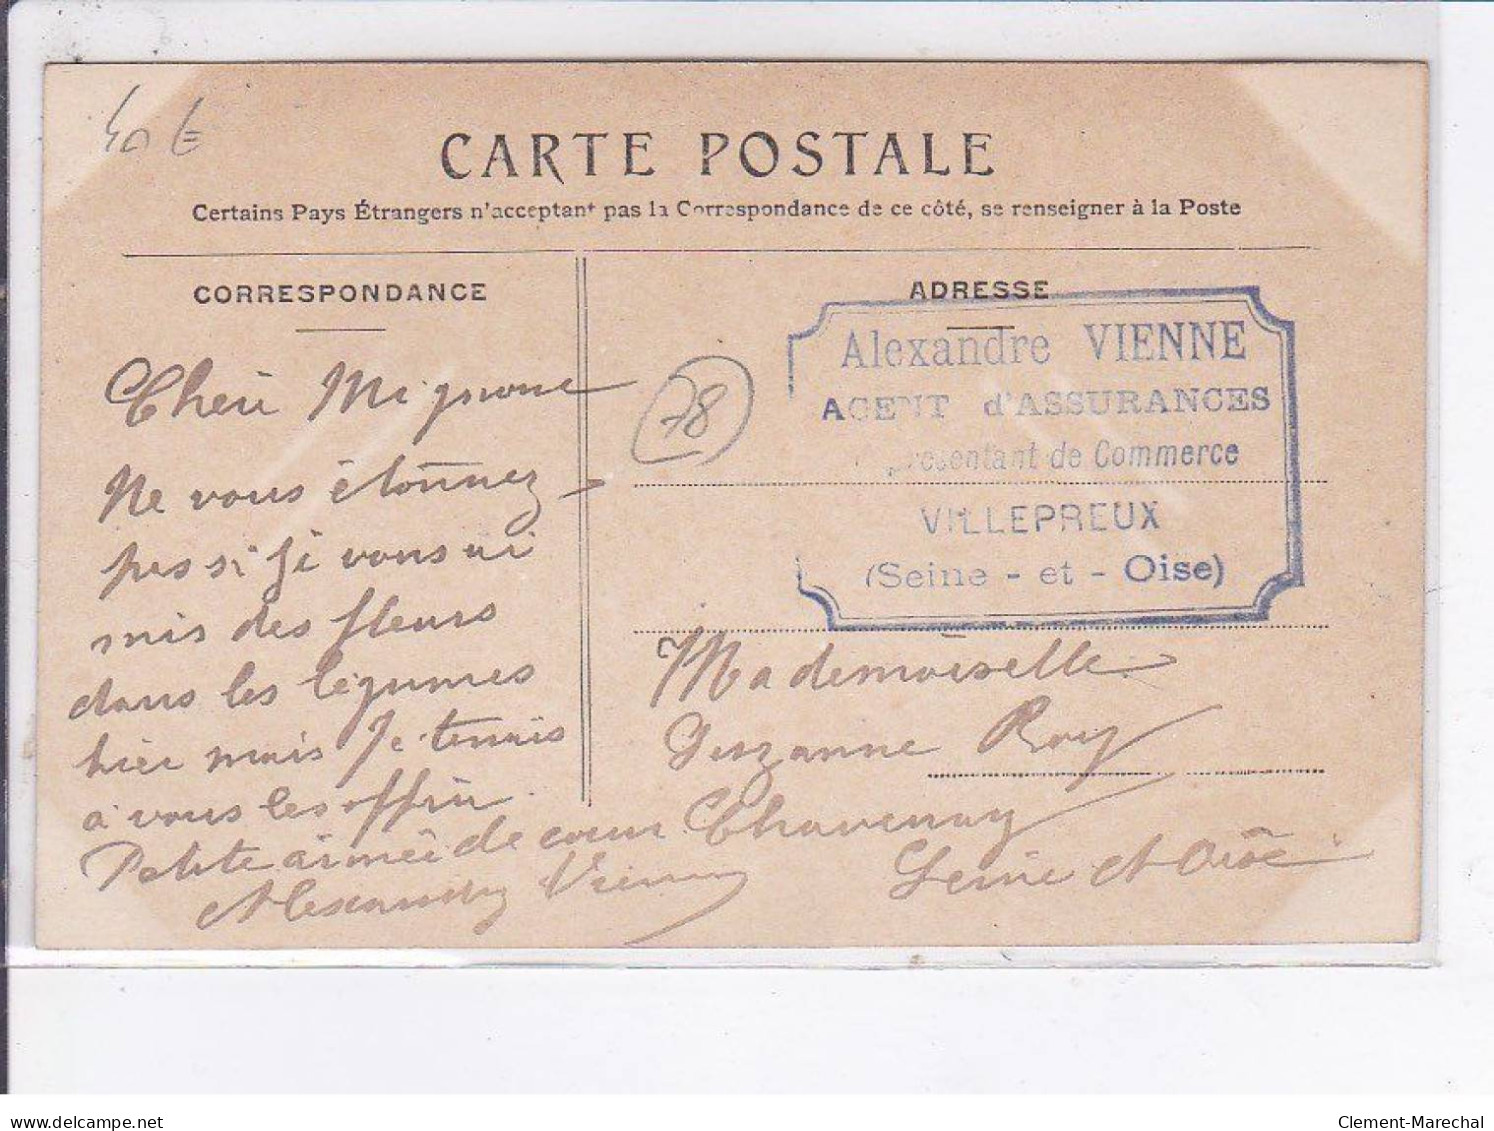 40 €
CARTE POSTALE
Certains Pays Étrangers n'acceptant pas la Correspondance de ce côté, se renseigner à la Poste
CORRESPONDANCE
Chéri Mignone
Ne vous étonnez
pas si je vous ai
mis des fleurs
dans les légumes
hier mais je tenais
à vous les offrir.
Petite aimée de cœur
Alexandre Vienne
ADRESSE
78
Alexandre VIENNE
AGENT d'ASSURANCES
Représentant de Commerce
VILLEPREUX
(Seine - et - Oise)
Mademoiselle
Suzanne Roy
Chavenay
Seine et Oise
delcampe.net
Clement-Marechal